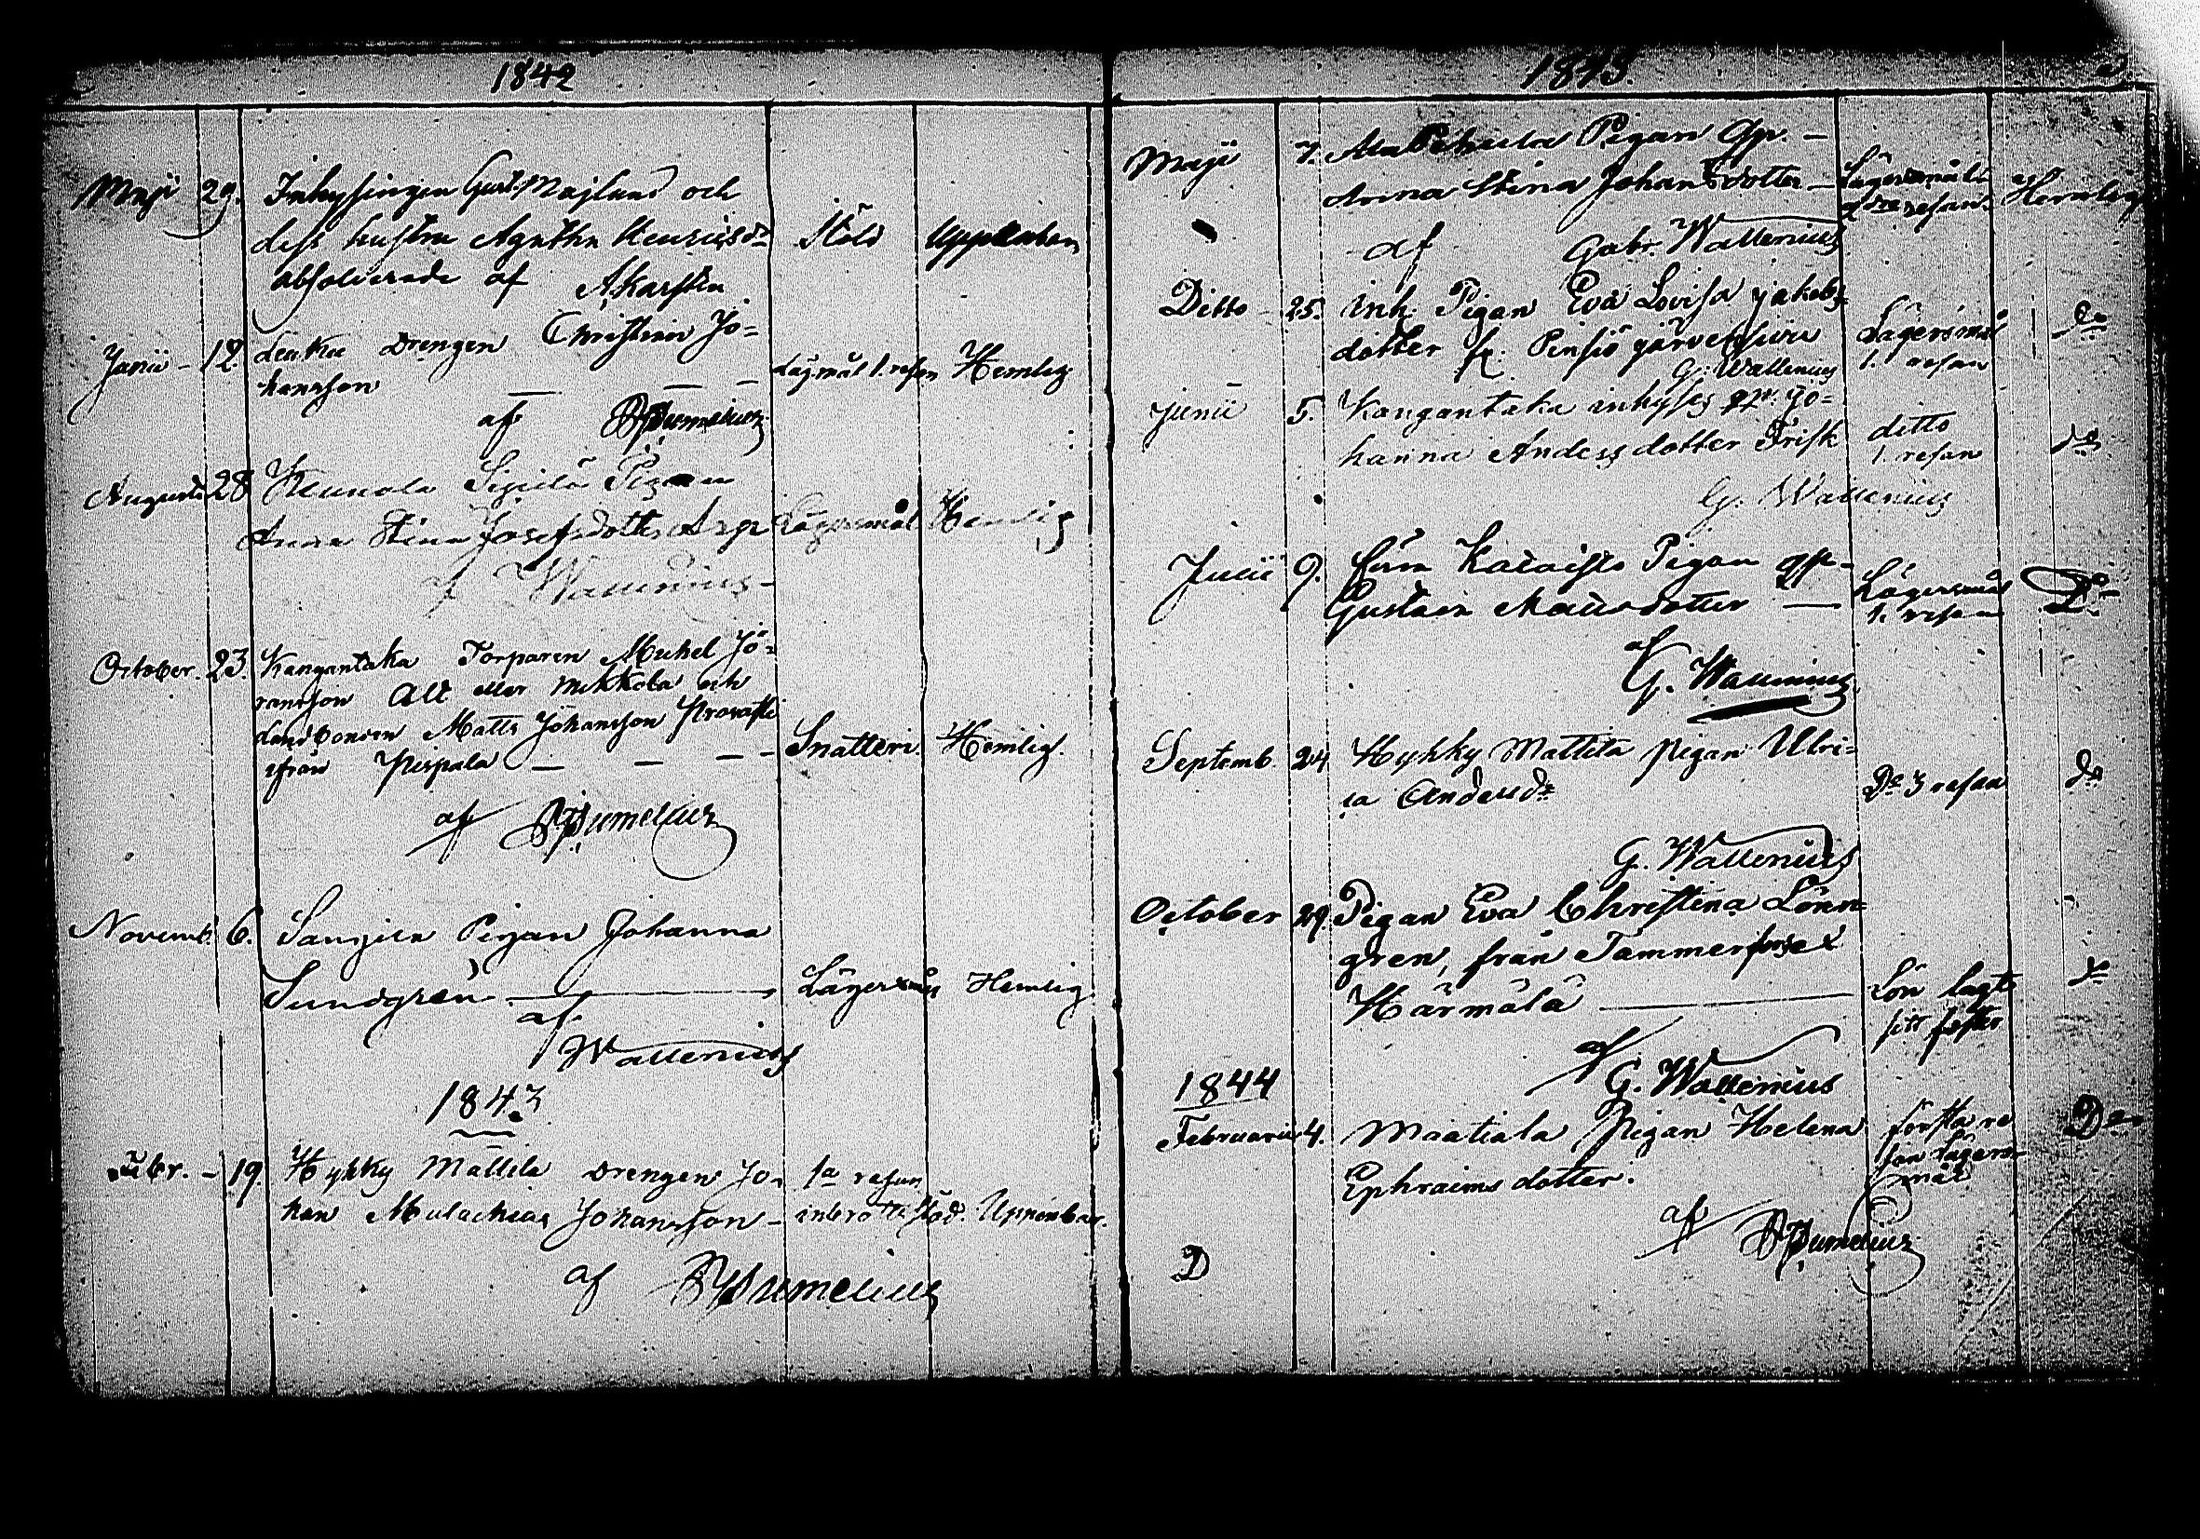 1842
Maji 29. Inhysingen Gust. Majlund och
dess hustru Agatha Henricsdr Stöld Uppenbar
absolverade af A. Karsten
Junii - 12. drengen Christian Jo=
hansson Läg.mål 1. resan Hemlig
af
Augusti 28 Sipilä Pigan
Anna Stina Josefsdotter Lägersmål Hemlig
af Wallenius
October. 23. Kangantaka Torparen Mickel Jö=
ransson Alt eller Mikkola och
Landbonden Matts Johansson
ifrån Pispala Snatteri. Hemlig.
af
Novemb. 6. Pigan Johanna
Sundgren Lägersmål Hemlig
af
Wallenius
1843
- 19. Hyhky Mattila Drengen Jo-
han Malachias Johansson - 1a resan Stöld. Uppenbar.
af
1843.
Maji 7. Pigan Qp. -
Anna Stina Johansdotter - Lägersmål resan Hemlig
af Gabr. Wallenius
Ditto - 25. inh. Pigan Eva Lovisa Jakobs=
dotter fr. Pinsiö Lägersmål 1. resan do
G. Wallenius
Junii 5. Kangantaka inhyses qp. Jo=
hanna Andersdotter Frisk ditto 1. resan do
G. Wallenius
Julii 9. Pigan qp.
Gustava Mattsdotter - Lägersmål 1. resan Do
af
G. Wallenius
Septemb. 24 Hyhky Mattila pigan Ulri=
ca Andersdr Do 3 resan do
G. Wallenius
October 29. Pigan Eva Christina Lönn=
gren, från Tammerfors &
Härmälä Lön lagt do
sitt foster
af
G. Wallenius
1844
Februarii 4. Maatiala Pigan Helena första re
Ephraims dotter. san Lägers-
mål Do
af
D